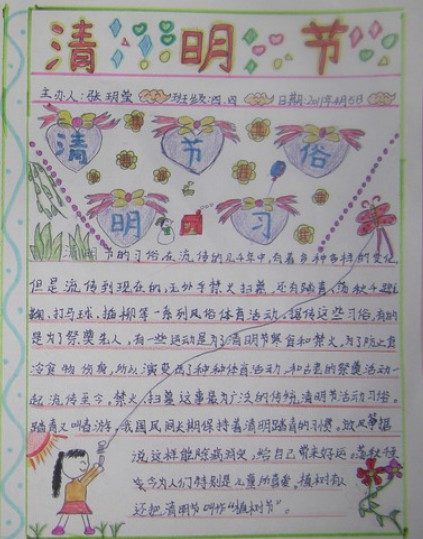 清明节
主办人:张玥莹 班级:四.四 日期:2011年4月5日
清 节 俗
明 习
清明节的习俗在流传的几千年中,有着多种多样的变化,
但是流传到现在的,无外乎禁火、扫墓,还有踏青、荡秋千、蹴
鞠、打马球、插柳等一系列风俗体育活动。据传这些习俗,有的
是为了祭奠先人,有一些运动是为了清明节寒食和禁火,为了防止食
冷食物伤身,所以演变为了种种体育活动,和古老的祭奠活动一
起流传至今。禁火、扫墓这事最为广泛的传统清明节活动习俗。
踏青又叫春游,我国民间长期保持着清明踏青的习惯。放风筝据
说这样能除病消灾,给自己带来好运。荡秋千
至今为人们特别是儿童所喜爱。植树
还把清明节叫作“植树节”。